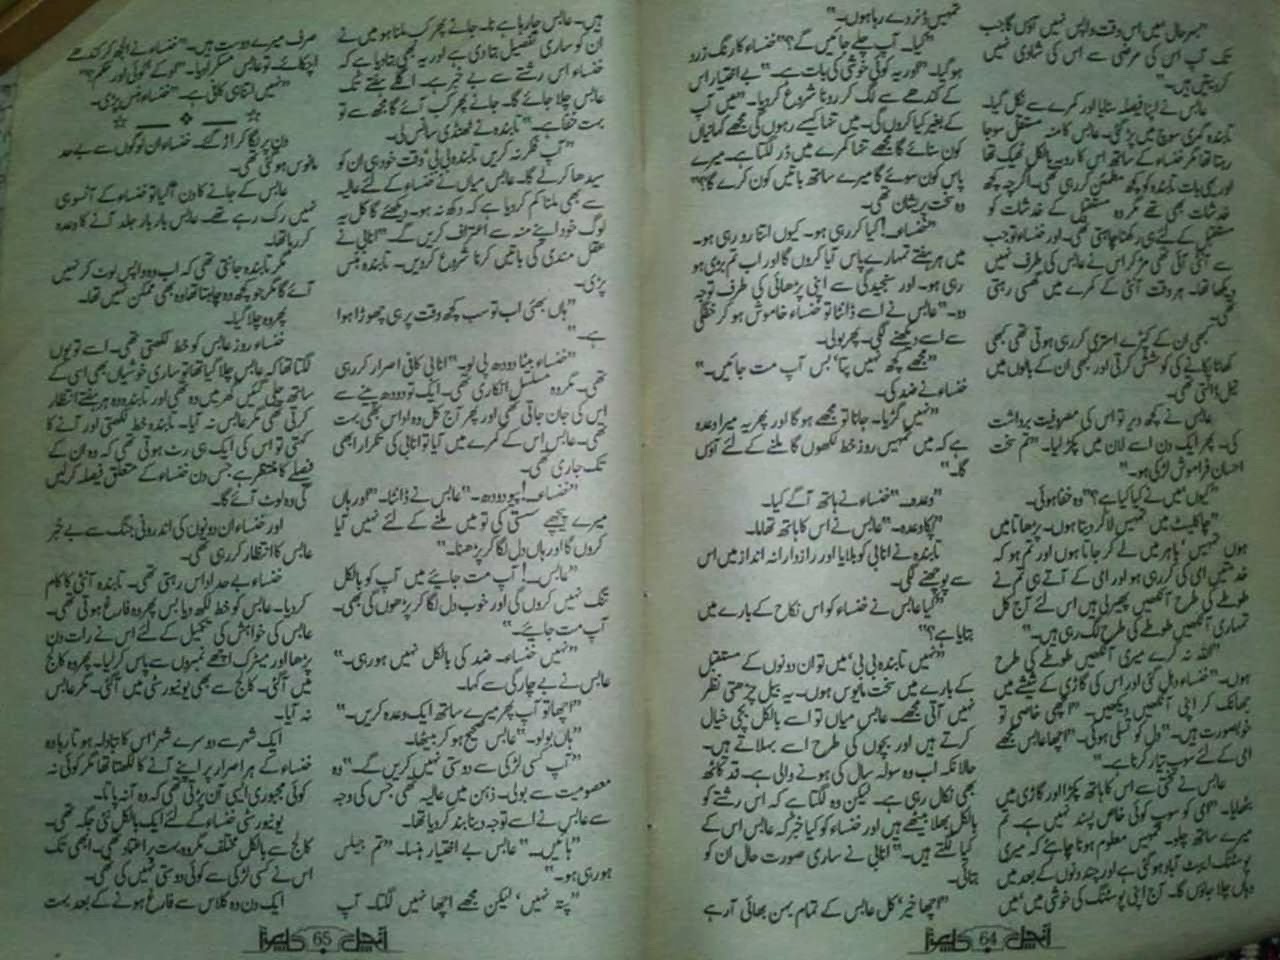 "بہرحال میں اس وقت واپس نہیں آؤں گا جب
تک آپ اس کی مرضی سے اس کی شادی نہیں
کر دیتیں ہیں۔"
عابس نے اپنا فیصلہ سنایا اور کمرے سے نکل گیا۔
تابندہ گہری سوچ میں پڑ گئی۔ عابس کا منہ مستقل سوجا
رہتا تھا مگر خنساء کے ساتھ اس کا رویہ بالکل ٹھیک تھا
اور یہی بات تابندہ کو کچھ مطمئن کر رہی تھی۔ اگرچہ کچھ
خدشات بھی تھے مگر وہ مستقبل کے خدشات کو
مستقبل کے لئے ہی رکھنا چاہتی تھی۔ اور خنساء تو جب
سے آنٹی آئی تھی مڑ کر اس نے عابس کی طرف نہیں
دیکھا تھا۔ ہر وقت آنٹی کے کمرے میں گھسی رہتی
تھی۔
کبھی ان کے کپڑے استری کر رہی ہوتی تھی کبھی
کھانا پکانے کی کوشش کرتی اور کبھی ان کے بالوں میں
تیل ڈالتی تھی۔
عابس نے کچھ دیر تو اس کی مصروفیت برداشت
کی۔ پھر ایک دن اسے لان میں پکڑ لیا۔ "تم سخت
احسان فراموش لڑکی ہو۔"
"کیوں میں نے کیا کیا ہے؟" وہ خفا ہوئی۔
"چاکلیٹ میں تمہیں لا کر دیتا ہوں۔ پڑھاتا میں
ہوں تمہیں' باہر میں لے کر جاتا ہوں اور تم ہو کہ
خدمتیں امی کی کر رہی ہو اور امی کے آتے ہی تم نے
طوطے کی طرح آنکھیں پھیر لی ہیں اس لئے آج کل
تمہاری آنکھیں طوطے کی طرح لگ رہی ہیں۔"
"اللہ نہ کرے میری آنکھیں طوطے کی طرح
ہوں۔" خنساء دہل گئی اور اس کی گاڑی کے شیشے میں
جھانک کر اپنی آنکھیں دیکھیں۔ "اچھی خاصی تو
خوبصورت ہیں۔" دل کو تسلی ہوئی۔ "اچھا عابس مجھے
امی کے لئے سوپ تیار کرنا ہے۔"
عابس نے سختی سے اس کا ہاتھ پکڑا اور گاڑی میں
بٹھایا۔ "امی کو سوپ کوئی خاص پسند نہیں ہے۔ تم
میرے ساتھ چلو۔ تمہیں معلوم ہونا چاہئے کہ میری
پوسٹنگ ایبٹ آباد ہو گئی ہے اور چند دنوں کے بعد میں
وہاں چلا جاؤں گا۔ آج اپنی پوسٹنگ کی خوشی میں' میں
تمہیں ڈنر دے رہا ہوں۔"
"کیا۔ آپ چلے جائیں گے؟" خنساء کا رنگ زرد
ہو گیا۔ "اور یہ کوئی خوشی کی بات ہے۔" بے اختیار اس
کے کندھے سے لگ کر رونا شروع کر دیا۔ "میں آپ
کے بغیر کیا کروں گی۔ میں تنہا کیسے رہوں گی مجھے کہانیاں
کون سنائے گا مجھے تنہا کمرے میں ڈر لگتا ہے۔ میرے
پاس کون سوئے گا میرے ساتھ باتیں کون کرے گا؟"
وہ سخت پریشان تھی۔
"خنساء۔! کیا کر رہی ہو۔ کیوں اتنا رو رہی ہو۔
میں ہر ہفتے تمہارے پاس آیا کروں گا اور اب تم بڑی ہو
رہی ہو۔ اور سنجیدگی سے اپنی پڑھائی کی طرف توجہ
دو۔" عابس نے اسے ڈانٹا تو خنساء خاموش ہو کر خفگی
سے اسے دیکھنے لگی۔ پھر بولی۔
"مجھے کچھ نہیں پتا' بس آپ مت جائیں۔"
خنساء نے ضد کی۔
"نہیں گڑیا۔ جانا تو مجھے ہو گا اور پھر یہ میرا وعدہ
ہے کہ میں تمہیں روز خط لکھوں گا ملنے کے لئے آؤں
گا۔"
"وعدہ۔" خنساء نے ہاتھ آگے کیا۔
"پکا وعدہ۔" عابس نے اس کا ہاتھ تھاما۔
تابندہ نے انابی کو بلایا اور رازدارانہ انداز میں اس
سے پوچھنے لگی۔
"کیا عابس نے خنساء کو اس نکاح کے بارے میں
بتایا ہے؟"
"نہیں تابندہ بی بی' میں تو ان دونوں کے مستقبل
کے بارے میں سخت مایوس ہوں۔ یہ بیل چڑھتی نظر
نہیں آتی مجھے۔ عابس میاں تو اسے بالکل بچی خیال
کرتے ہیں اور بچوں کی طرح اسے بہلاتے ہیں۔
حالانکہ اب وہ سولہ سال کی ہونے والی ہے۔ قد کاٹھ
بھی نکال رہی ہے۔ لیکن وہ لگتا ہے کہ اس رشتے کو
بالکل بھلا بیٹھے ہیں اور خنساء کو کیا خبر کہ عابس اس کے
کیا لگتے ہیں۔" انابی نے ساری صورت حال ان کو
بتائی۔
"اچھا خیر' کل عابس کے تمام بہن بھائی آ رہے
آنچل 64 کراچی
ہیں۔ عابس جا رہا ہے نا۔ جانے پھر کب ملنا ہو میں نے
ان کو ساری تفصیل بتا دی ہے اور یہ بھی بتا دیا ہے کہ
خنساء اس رشتے سے بے خبر ہے۔ اگلے ہفتے تک
عابس چلا جائے گا۔ جانے پھر کب آئے گا مجھ سے تو
بہت خفا ہے۔" تابندہ نے ٹھنڈی سانس لی۔
"آپ فکر نہ کریں تابندہ بی بی' وقت خود ہی ان کو
سیدھا کر لے گا۔ عابس میاں نے خنساء کے لئے عالیہ
سے بھی ملنا کم کر دیا ہے کہ دکھ نہ ہو۔ دیکھئے گا کل یہ
لوگ خود اپنے منہ سے اعتراف کریں گے۔" انابی نے
عقل مندی کی باتیں کرنا شروع کر دیں۔ تابندہ ہنس
پڑی۔
"ہاں بھئی اب تو سب کچھ وقت پر ہی چھوڑا ہوا
ہے۔"
"خنساء بیٹا دودھ پی لو۔" انابی کافی اصرار کر رہی
تھی۔ مگر وہ مسلسل انکاری تھی۔ ایک تو دودھ پینے سے
اس کی جان جاتی تھی اور پھر آج کل وہ اداس بھی بہت
تھی۔ عابس اس کے کمرے میں آیا تو انابی کی تکرار ابھی
تک جاری تھی۔
"خنساء۔! پیو دودھ۔" عابس نے ڈانٹا۔ "اور ہاں
میرے پیچھے سستی کی تو میں ملنے کے لئے نہیں آیا
کروں گا اور ہاں دل لگا کر پڑھنا۔"
"عابس۔! آپ مت جایئے میں آپ کو بالکل
تنگ نہیں کروں گی اور خوب دل لگا کر پڑھوں گی بھی۔
آپ مت جایئے۔"
"نہیں خنساء۔ ضد کی بالکل نہیں ہو رہی۔"
عابس نے بے چارگی سے کہا۔
"اچھا تو آپ پھر میرے ساتھ ایک وعدہ کریں۔"
"ہاں بولو۔" عابس صحیح ہو کر بیٹھا۔
"آپ کسی لڑکی سے دوستی نہیں کریں گے۔" وہ
معصومیت سے بولی۔ ذہن میں عالیہ تھی جس کی وجہ
سے عابس نے اسے توجہ دینا بند کر دیا تھا۔
"ہائیں۔" عابس بے اختیار ہنسا۔ "تم جیلس
ہو رہی ہو۔"
"پتہ نہیں' لیکن مجھے اچھا نہیں لگتا۔ آپ
صرف میرے دوست ہیں۔" خنساء نے الجھ کر کندھے
اچکائے۔ تو عابس مسکرا دیا۔ "اوکے' کوئی اور حکم؟"
"نہیں اتنا ہی کافی ہے۔" خنساء ہنس پڑی۔
☆ ——— ❖ ——— ☆
دن پر لگا کر اڑ گئے۔ خنساء ان لوگوں سے بے حد
مانوس ہو گئی تھی۔
عابس کے جانے کا دن آ گیا تو خنساء کے آنسو ہی
نہیں رک رہے تھے۔ عابس بار بار جلد آنے کا وعدہ
کر رہا تھا۔
مگر تابندہ جانتی تھی کہ اب وہ واپس لوٹ کر نہیں
آئے گا مگر جو کچھ وہ چاہتا تھا وہ بھی ممکن نہیں تھا۔
پھر وہ چلا گیا۔
خنساء روز عابس کو خط لکھتی تھی۔ اسے تو یوں
لگتا تھا کہ عابس چلا گیا تھا تو ساری خوشیاں بھی اسی کے
ساتھ چلی گئیں گھر میں وہ تھی اور تابندہ وہ ہر ہفتے انتظار
کرتی تھی مگر عابس نہ آیا۔ تابندہ خط لکھتی اور آنے کا
کہتی تو اس کی ایک ہی رٹ ہوتی تھی کہ وہ ان کے
فیصلے کا منتظر ہے جس دن خنساء کے متعلق فیصلہ کر لیں
گی وہ لوٹ آئے گا۔
اور خنساء ان دونوں کی اندرونی جنگ سے بے خبر
عابس کا انتظار کر رہی تھی۔
خنساء بے حد اداس رہتی تھی۔ تابندہ آنٹی کا کام
کر دیا۔ عابس کو خط لکھ دیا بس پھر وہ فارغ ہوتی تھی۔
عابس کی خواہش کی تکمیل کے لئے اس نے رات دن
پڑھا اور میٹرک اچھے نمبروں سے پاس کر لیا۔ پھر وہ کالج
میں آ گئی۔ کالج سے بھی یونیورسٹی میں آ گئی۔ مگر عابس
نہ آیا۔
ایک شہر سے دوسرے شہر' اس کا تبادلہ ہوتا رہا وہ
خنساء کے ہر اصرار پر اپنے آنے کا لکھتا تھا مگر کوئی نہ
کوئی مجبوری ایسی آن پڑتی تھی کہ وہ آ نہ پاتا۔
یونیورسٹی خنساء کے لئے ایک بالکل نئی جگہ تھی۔
کالج سے بالکل مختلف مگر وہ بہت پر اعتماد تھی۔ ابھی تک
اس نے کسی لڑکی سے کوئی دوستی نہیں کی تھی۔
ایک دن وہ کلاس سے فارغ ہونے کے بعد بہت
آنچل 65 کراچی